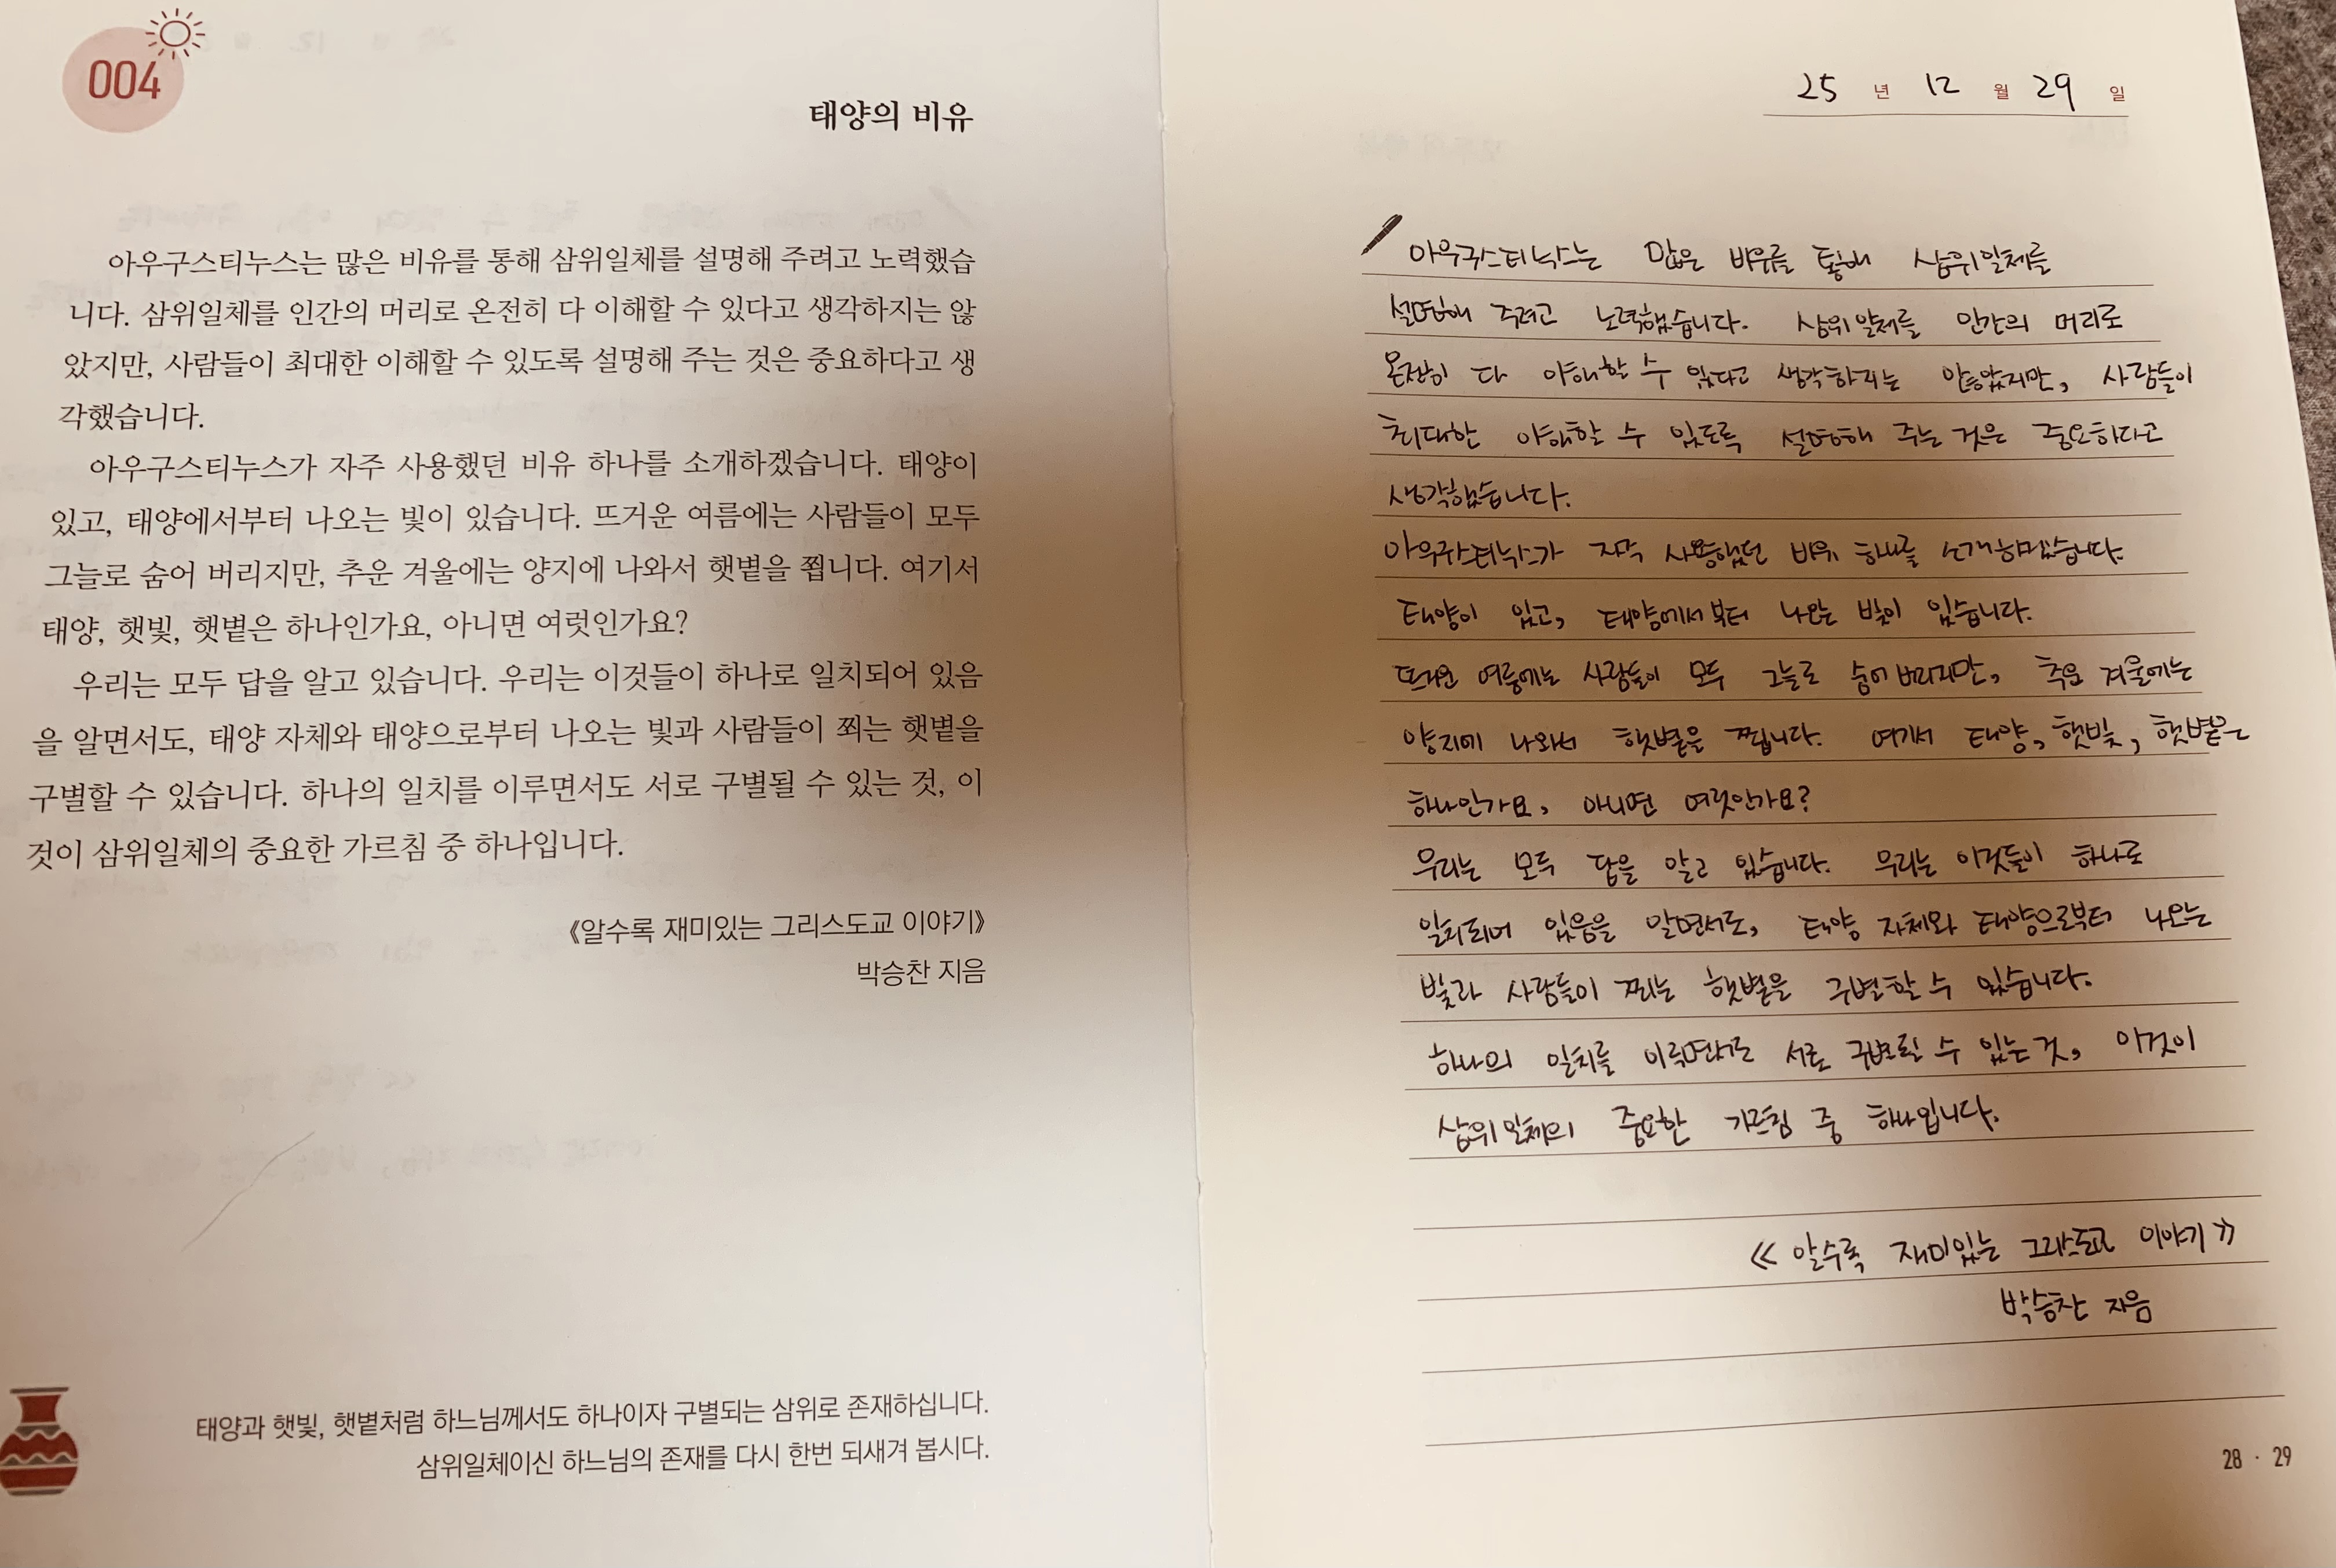 004
태양의 비유
아우구스티누스는 많은 비유를 통해 삼위일체를 설명해 주려고 노력했습
니다. 삼위일체를 인간의 머리로 온전히 다 이해할 수 있다고 생각하지는 않
았지만, 사람들이 최대한 이해할 수 있도록 설명해 주는 것은 중요하다고 생
각했습니다.
아우구스티누스가 자주 사용했던 비유 하나를 소개하겠습니다. 태양이
있고, 태양에서부터 나오는 빛이 있습니다. 뜨거운 여름에는 사람들이 모두
그늘로 숨어 버리지만, 추운 겨울에는 양지에 나와서 햇볕을 쬡니다. 여기서
태양, 햇빛, 햇볕은 하나인가요, 아니면 여럿인가요?
우리는 모두 답을 알고 있습니다. 우리는 이것들이 하나로 일치되어 있음
을 알면서도, 태양 자체와 태양으로부터 나오는 빛과 사람들이 쬐는 햇볕을
구별할 수 있습니다. 하나의 일치를 이루면서도 서로 구별될 수 있는 것, 이
것이 삼위일체의 중요한 가르침 중 하나입니다.
《알수록 재미있는 그리스도교 이야기》
박승찬 지음
태양과 햇빛, 햇볕처럼 하느님께서도 하나이자 구별되는 삼위로 존재하십니다.
삼위일체이신 하느님의 존재를 다시 한번 되새겨 봅시다.
25 년 12 월 29 일
아우구스티누스는 많은 비유를 통해 삼위일체를
설명해 주려고 노력했습니다. 삼위일체를 인간의 머리로
온전히 다 이해할 수 있다고 생각하지는 않았지만, 사람들이
최대한 이해할 수 있도록 설명해 주는 것은 중요하다고
생각했습니다.
아우구스티누스가 자주 사용했던 비유 하나를 소개하겠습니다.
태양이 있고, 태양에서부터 나오는 빛이 있습니다.
뜨거운 여름에는 사람들이 모두 그늘로 숨어 버리지만, 추운 겨울에는
양지에 나와서 햇볕을 쬡니다. 여기서 태양, 햇빛, 햇볕은
하나인가요, 아니면 여럿인가요?
우리는 모두 답을 알고 있습니다. 우리는 이것들이 하나로
일치되어 있음을 알면서도, 태양 자체와 태양으로부터 나오는
빛과 사람들이 쬐는 햇볕을 구별할 수 있습니다.
하나의 일치를 이루면서도 서로 구별될 수 있는 것, 이것이
삼위일체의 중요한 가르침 중 하나입니다.
《알수록 재미있는 그리스도교 이야기》
박승찬 지음
28 · 29